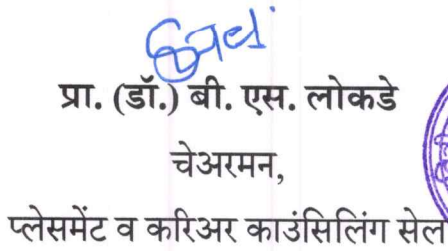 प्रा. (डॉ.) बी. एस. लोकडे
चेअरमन,
प्लेसमेंट व करिअर काउंसिलिंग सेल